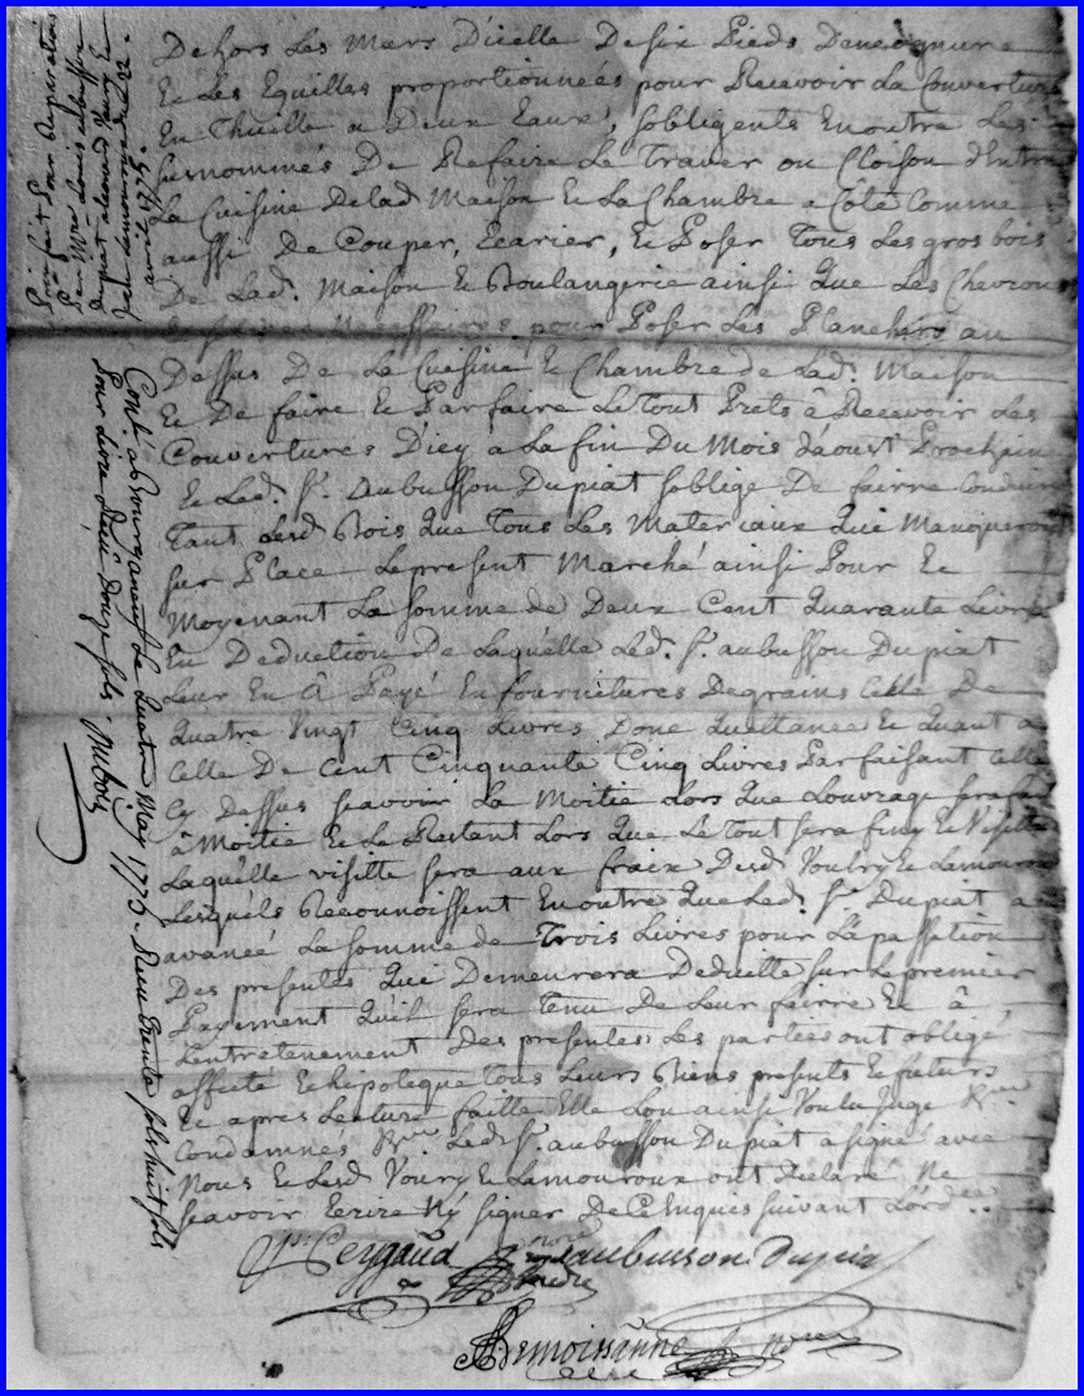 Dehors Les Murs D'icelle De six Pieds Deneognure
Et Les Equilles proportionneés pour Recevoir La Couverture
En Thuille a Deux Eaux, sobligents En outre Les
surnommés De Refaire Le Traver ou Cloison d'Entre
La Cuisine De lad Maison Et La Chambre a Coté Comme
aussi De Couper, Ecarier, Et Poser Tous Les gros bois
De Lad. Maison Et Boulangerie ainsi Que Les Chevrons
Necessaires pour Poser Les Planchers au
Dessus De La Cuisine Et Chambre de Lad. Maison
Et De faire Et Parfaire Le Tout Prets â Recevoir Les
Couvertures D'icy a La fin Du Mois d'aoust Prochain
Et Led. Sr. aubusson Dupiat soblige De fairre Conduire
Tant Lesd Bois Que Tous Les Materiaux Qui Manqueront
sur Place Le present Marché ainsi Pour Et
Moyenant La somme de Deux Cent Quarante Livres
En Deduction De Laquélle Led. Sr. aubusson Dupiat
Leur En â Payé En fournitures De grains Celle De
Quatre Vingt Cinq Livres Donc Quittance Et Quant a
Celle De Cent Cinquante Cinq Livres Parfaisant Celle
Cy Dessus scavoir La Moitié Lors Que Louvrage sera fait
â Moitié Et Le Restant Lors Que Le Tout sera finy Et Visitté
Laquélle visitte sera aux fraix Desd Voulry Et Lamouroux
Lesquéls Reconnoissent En outre Que Led. Sr. Dupiat a
avanceé La somme de Trois Livres pour La passation
Des presentes Qui Demeurera Deduitte sur Le premier
Payement Qu'il sera Tenu De Leur fairre Et â
Lentretenement Des presentes Les parties ont obligé
affecté Et hipotequé Tous Leurs Biens presents Et futurs
Et apres Lecture faitte Elle Lon ainsi Voulu Jugé
Condamnés Led. Sr. aubusson Dupiat a signé avec
Nous Et Lesd Voury Et Lamouroux ont Declaré Ne
scavoir Ecrire Ny signer De Ce Enquis suivant Lord..
Ceygaud aubusson Dupiat
Bemoissanne
Prix fait Pour Reparations
Par Mre Louis aubusson
Dupiat
avril 1775.
Conté a Bourganeuf Le Quatre May 1775. Reçu Trente sols huit sols
Pour Livre Reçu Douze sols. Dubois